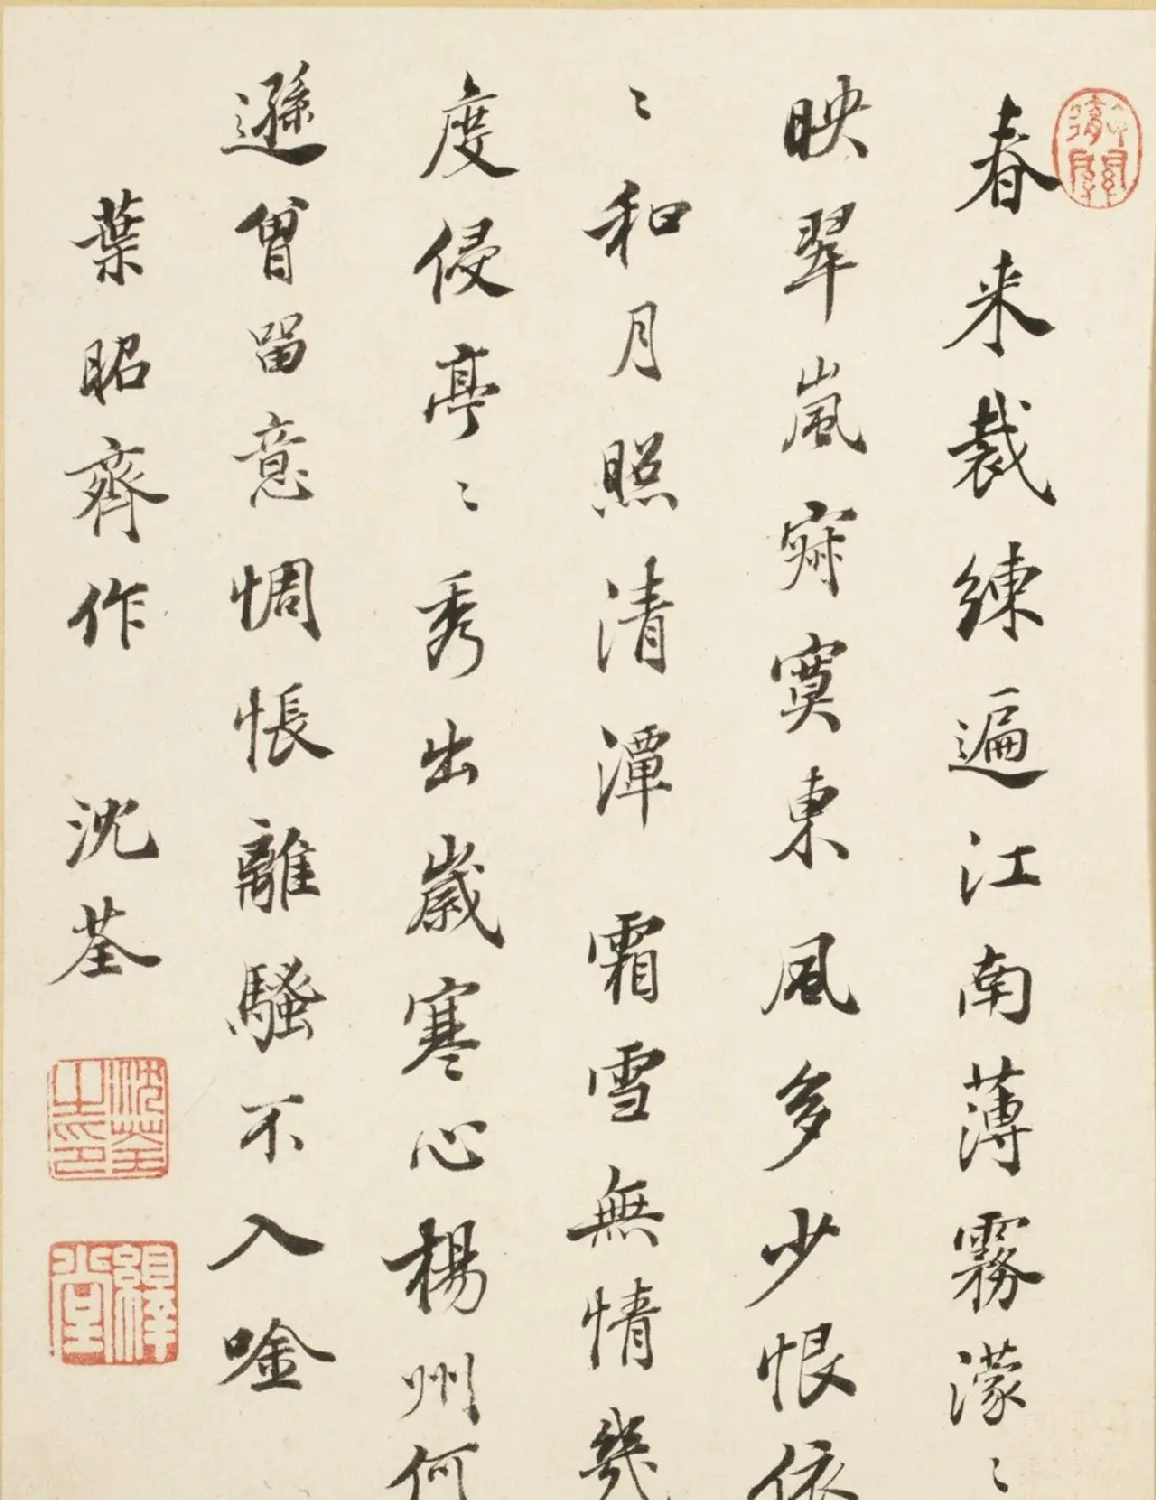 春来裁練遍江南薄霧濛〻
映翠嵐寂寞東風多少恨依
〻和月照清潭 霜雪無情幾
度侵亭〻秀出歲寒心楊州何
遜曾留意惆悵離騷不入唫
葉昭齊作 沈荃
沈荃之印
繹堂